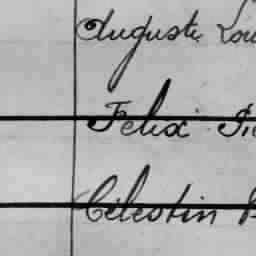 Auguste Lou
Felix
Célestin